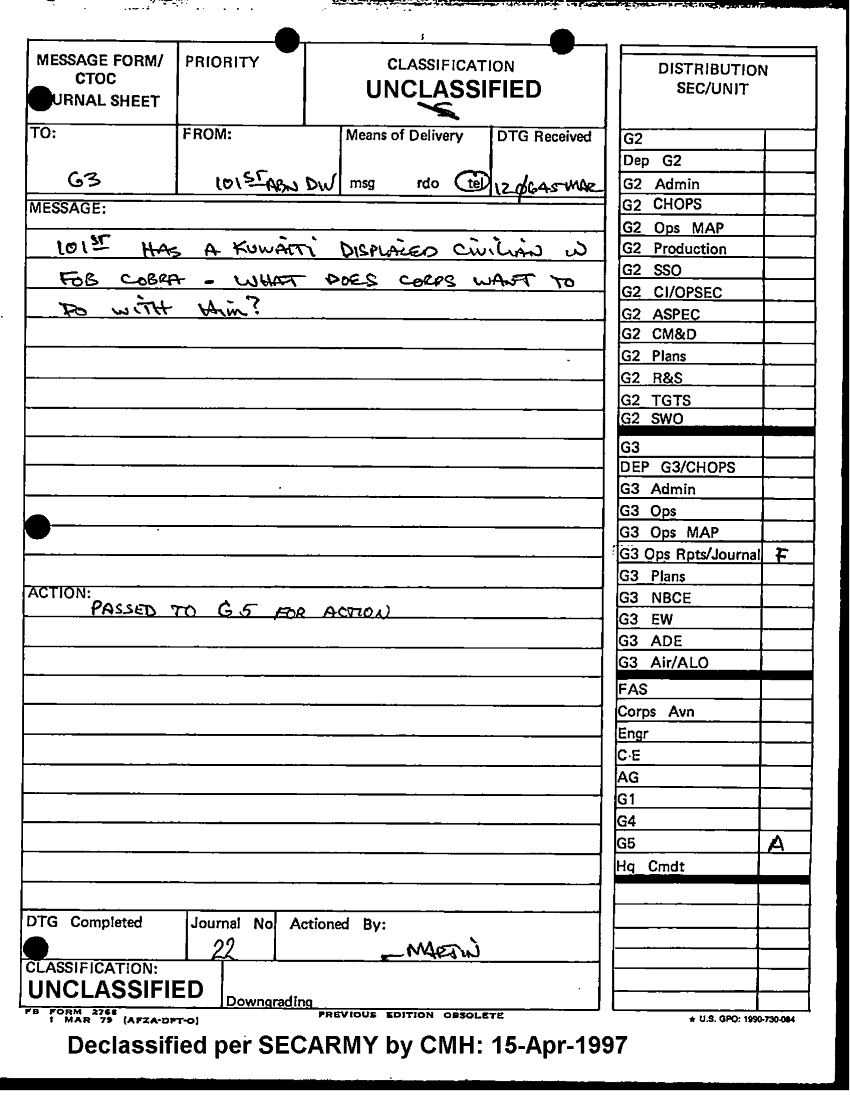 MESSAGE FORM/
CTOC
URNAL SHEET
PRIORITY
CLASSIFICATION
UNCLASSIFIED
TO:
G3
FROM:
101ST ABN DIV
Means of Delivery
msg rdo tel
DTG Received
120645 MAR
MESSAGE:
101ST HAS A KUWAITI DISPLACED CIVILIAN IN
FOB COBRA - WHAT DOES CORPS WANT TO
DO WITH Him?
ACTION:
PASSED TO G5 FOR ACTION
DTG Completed
Journal No
22
Actioned By:
MARTIN
CLASSIFICATION:
UNCLASSIFIED
Downgrading
FB FORM 2768
1 MAR 79 (AFZA-DPT-O)
PREVIOUS EDITION OBSOLETE
DISTRIBUTION
SEC/UNIT
G2
Dep G2
G2 Admin
G2 CHOPS
G2 Ops MAP
G2 Production
G2 SSO
G2 CI/OPSEC
G2 ASPEC
G2 CM&D
G2 Plans
G2 R&S
G2 TGTS
G2 SWO
G3
DEP G3/CHOPS
G3 Admin
G3 Ops
G3 Ops MAP
G3 Ops Rpts/Journal F
G3 Plans
G3 NBCE
G3 EW
G3 ADE
G3 Air/ALO
FAS
Corps Avn
Engr
C-E
AG
G1
G4
G5 A
Hq Cmdt
★ U.S. GPO: 1990-730-084
Declassified per SECARMY by CMH: 15-Apr-1997